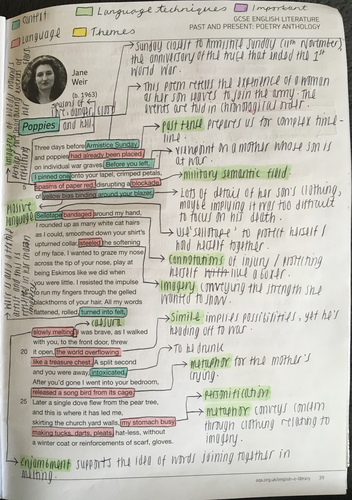 Context
Language techniques
Important
Language
Themes
GCSE ENGLISH LITERATURE
PAST AND PRESENT: POETRY ANTHOLOGY
Jane
Weir
(b. 1963)
Poppies
Three days before Armistice Sunday
and poppies had already been placed
on individual war graves. Before you left,
I pinned one onto your lapel, crimped petals,
5 spasms of paper red, disrupting a blockade
of yellow bias binding around your blazer.
Sellotape bandaged around my hand,
I rounded up as many white cat hairs
as I could, smoothed down your shirt's
upturned collar, steeled the softening
of my face. I wanted to graze my nose
across the tip of your nose, play at
being Eskimos like we did when
you were little. I resisted the impulse
to run my fingers through the gelled
blackthorns of your hair. All my words
flattened, rolled, turned into felt,
slowly melting. I was brave, as I walked
with you, to the front door, threw
20 it open, the world overflowing
like a treasure chest. A split second
and you were away, intoxicated.
After you'd gone I went into your bedroom,
released a song bird from its cage.
25 Later a single dove flew from the pear tree,
and this is where it has led me,
skirting the church yard walls, my stomach busy
making tucks, darts, pleats, hat-less, without
a winter coat or reinforcements of scarf, gloves.
Sunday closest to Armistice Sunday (11th November),
the anniversary of the truce that ended the 1st
World War.
This poem retells the experience of a woman
as her son leaves to join the army. The
events are told in chronological order.
past tense prepares us for complex time-
line.
viewpoint on a mother whose son is
at war.
military semantic field.
Lots of detail of her son's clothing,
maybe implying it was too difficult
to focus on his death.
'sellotape' to protect herself /
hold herself together.
Connotations of injury / protecting
herself
Imagery conveying the strength she
wanted to show.
caesura
Simile implies possibilities, yet he's
heading off to war.
To be drunk
metaphor for the mother's
crying.
personification
metaphor conveys concern
through clothing relating to
imagery.
enjambment supports the idea of words joining together in
melting.
39